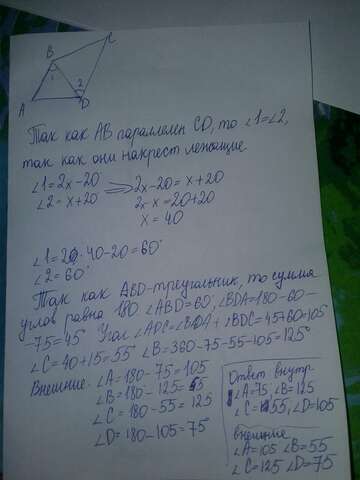 B
C
1
2
A
D
Так как AB параллелен CD, то ∠1=∠2,
так как они накрест лежащие
∠1=2x-20 2x-20=x+20
∠2=x+20 2x-x=20+20
x=40
∠1=2·40-20=60°
∠2=60°
Так как ABD-треугольник, то сумма
углов равна 180. ∠ABD=60°, ∠BDA=180-60-
-75=45° Угол ∠ADC=∠BDA+∠BDC=45+60=105
∠C=40+15=55 ∠B=360-75-55-105=125°
Внешние. ∠A=180-75=105
∠B=180-125=55
∠C=180-55=125
∠D=180-105=75
Ответ внутр
∠A=75, ∠B=125
∠C=55, ∠D=105
внешние
∠A=105 ∠B=55
∠C=125 ∠D=75